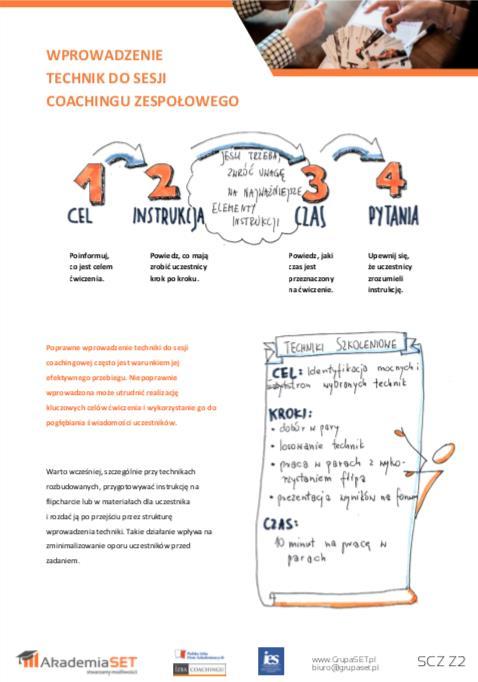 WPROWADZENIE
TECHNIK DO SESJI
COACHINGU ZESPOŁOWEGO
1
CEL
2
INSTRUKCJA
JEŚLI TRZEBA,
ZWRÓĆ UWAGĘ
NA NAJWAŻNIEJSZE
ELEMENTY
INSTRUKCJI
3
CZAS
4
PYTANIA
Poinformuj,
co jest celem
ćwiczenia.
Powiedz, co mają
zrobić uczestnicy
krok po kroku.
Powiedz, jaki
czas jest
przeznaczony
na ćwiczenie.
Upewnij się,
że uczestnicy
zrozumieli
instrukcję.
Poprawne wprowadzenie techniki do sesji
coachingowej często jest warunkiem jej
efektywnego przebiegu. Niepoprawnie
wprowadzona może utrudnić realizację
kluczowych celów ćwiczenia i wykorzystanie go do
pogłębiania świadomości uczestników.
Warto wcześniej, szczególnie przy technikach
rozbudowanych, przygotowywać instrukcję na
flipcharcie lub w materiałach dla uczestnika
i rozdać ją po przejściu przez strukturę
wprowadzenia techniki. Takie działanie wpływa na
zminimalizowanie oporu uczestników przed
zadaniem.
TECHNIKI SZKOLENIOWE
CEL: Identyfikacja mocnych i
stron wybranych technik
KROKI:
• dobór w pary
• losowanie technik
• praca w parach z wyko-
rzystaniem flipa
• prezentacja wyników na forum
CZAS:
10 minut na pracę w
parach
AkademiaSET
stwarzamy możliwości
IZBA COACHINGU
ies
www.GrupaSET.pl
biuro@grupaset.pl
SCZ Z2